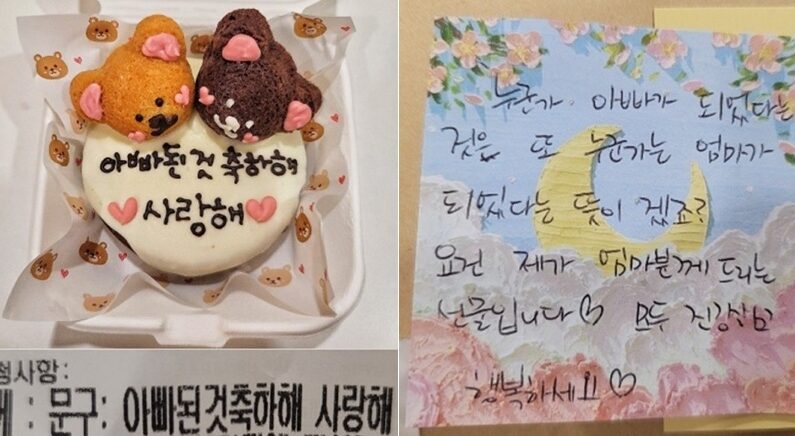 아빠된것 축하해
사랑해
청사항:
: 문구: 아빠된것축하해 사랑해
누군가 아빠가 되었다는
것은 또 누군가는 엄마가
되었다는 뜻이 겠죠?
요건 제가 엄마분께 드리는
선물입니다♡ 모두 건강하고
행복하세요♡